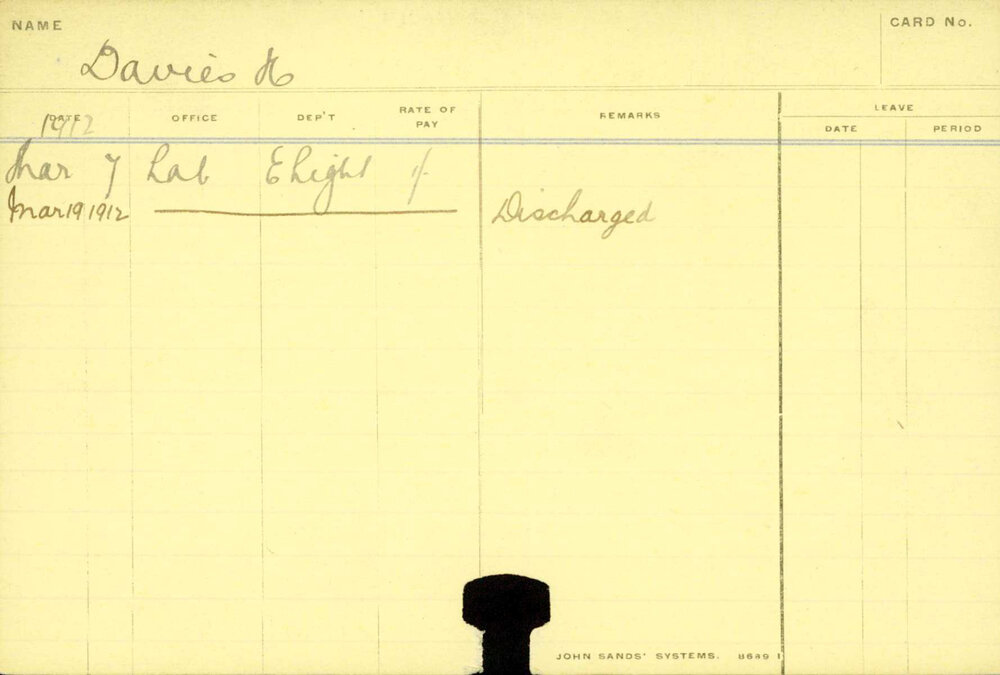 NAME
CARD No.
Davies H
DATE OFFICE DEP'T RATE OF PAY REMARKS LEAVE
DATE PERIOD
1912
Mar 7 Lab E Light 1/-
Mar 19 1912 Discharged
JOHN SANDS' SYSTEMS. 8689